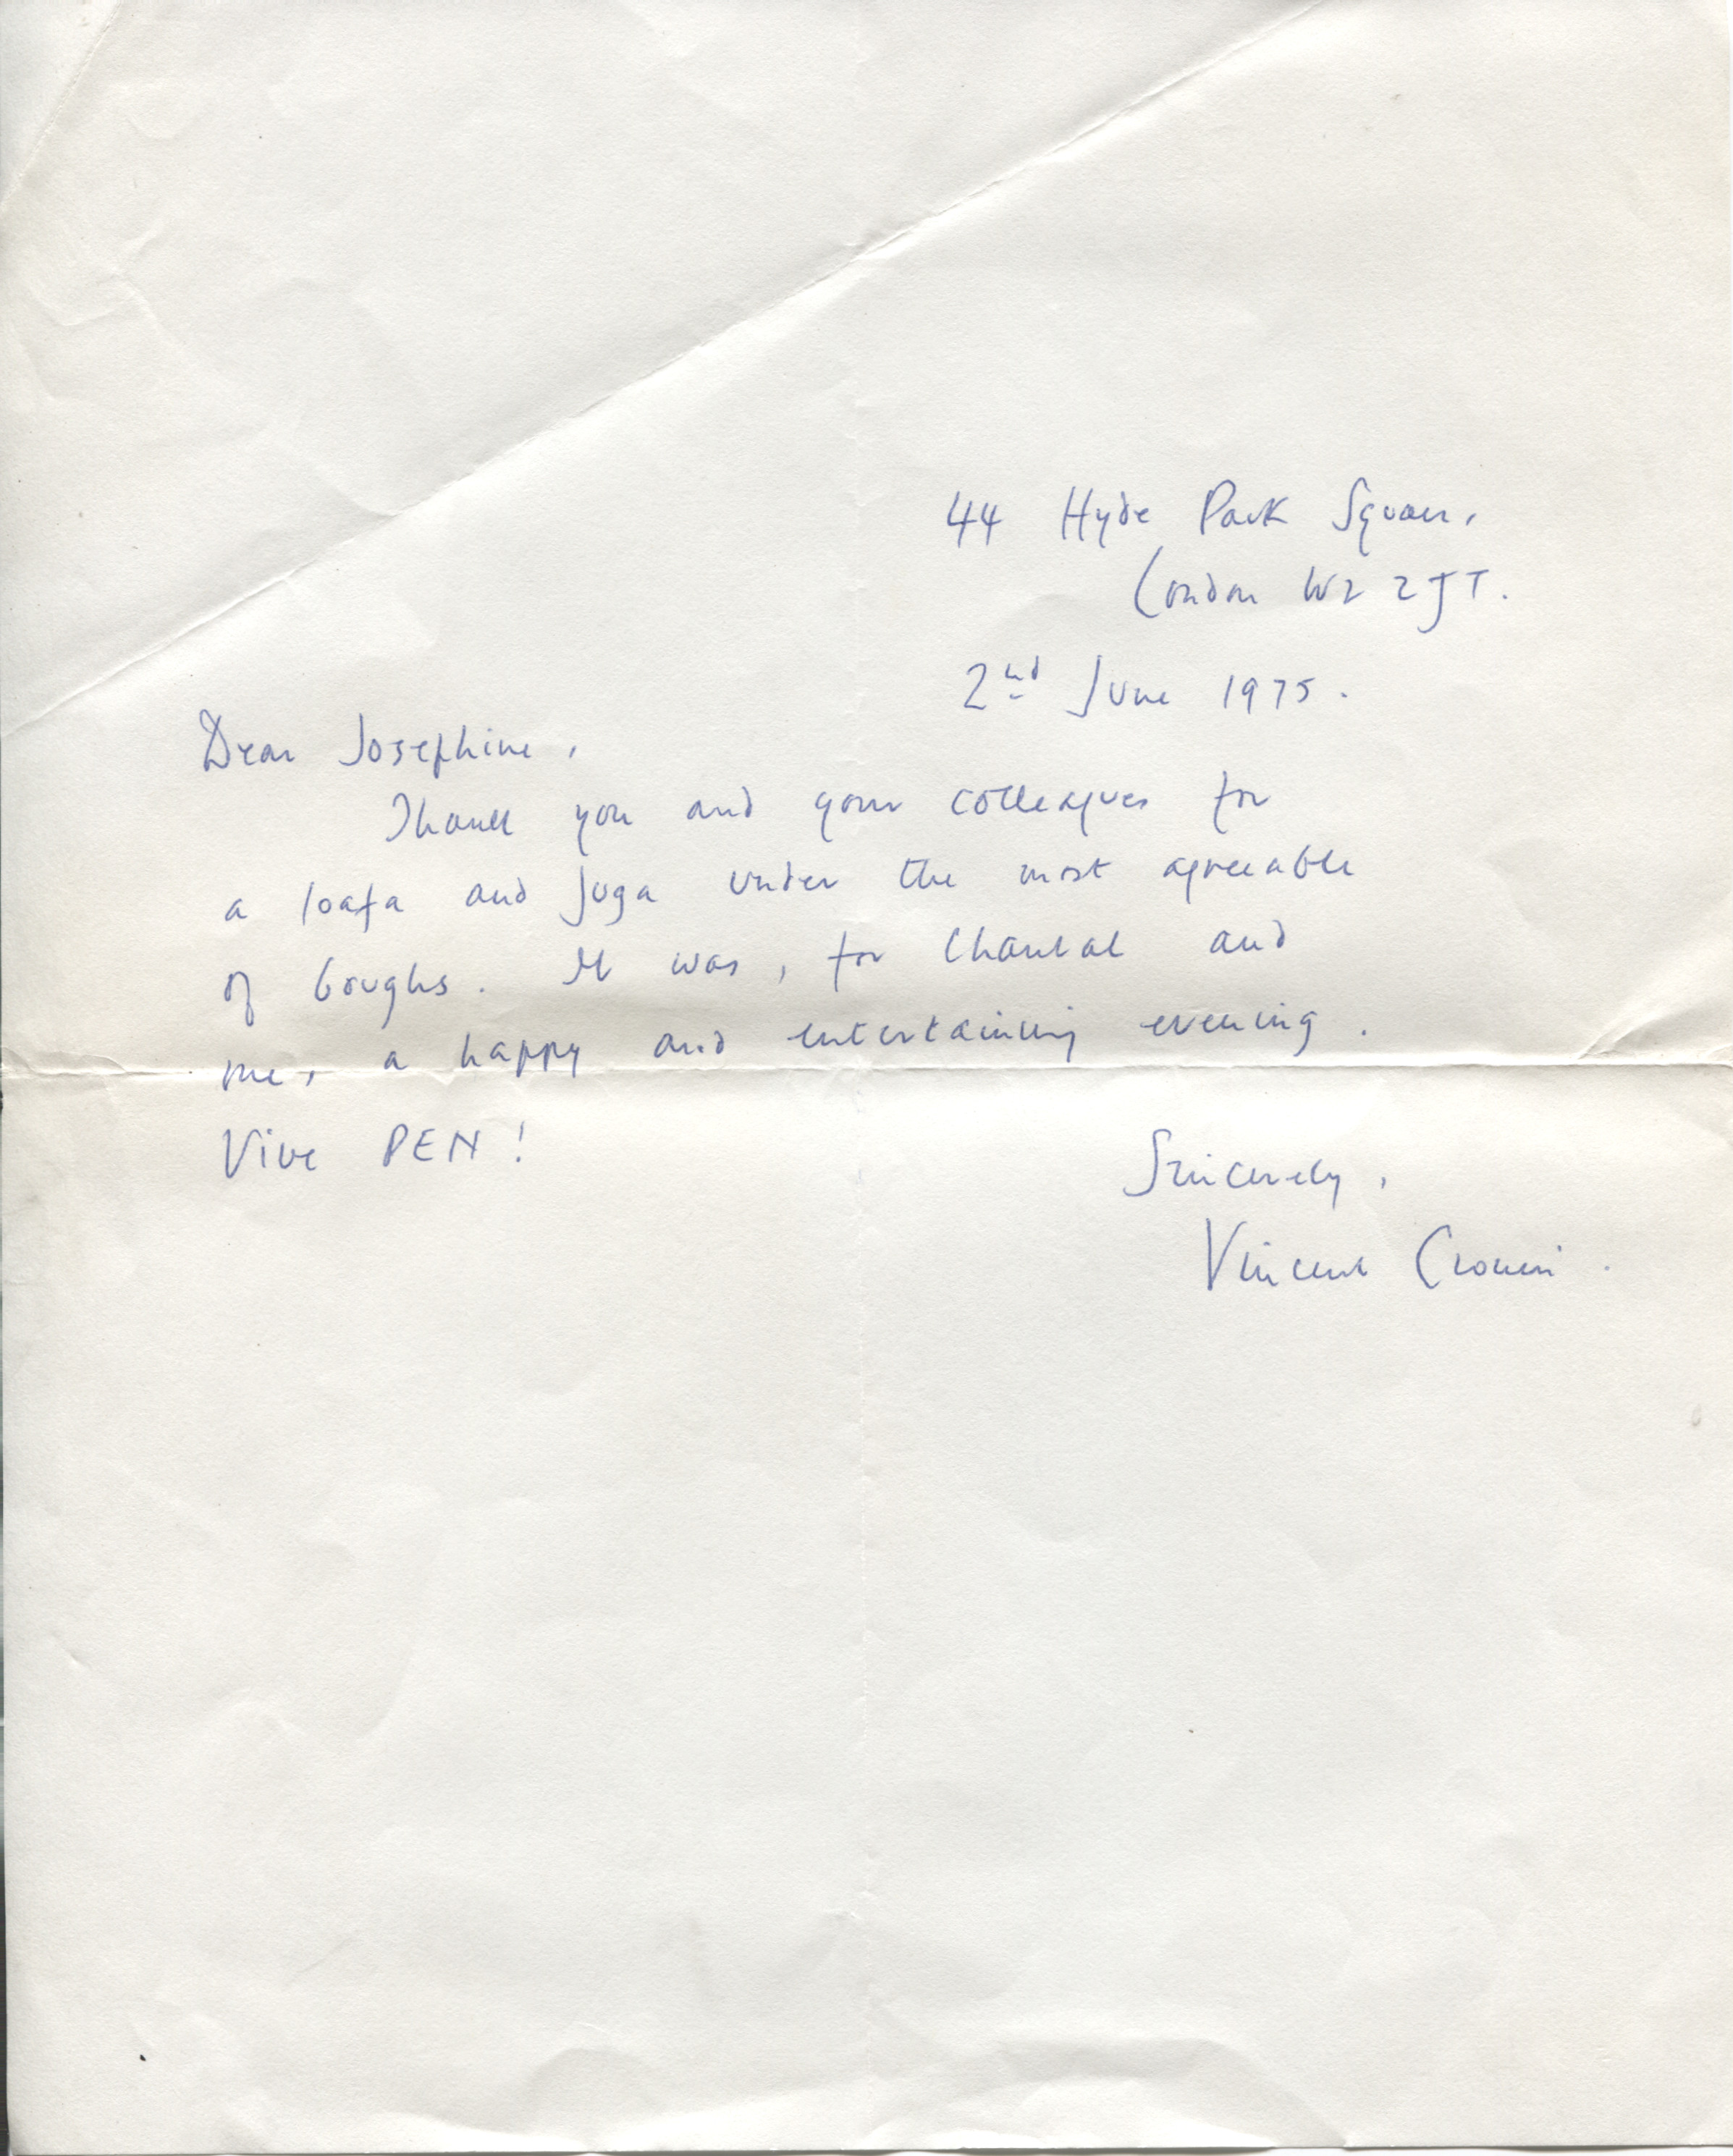 44 Hyde Park Square,
London W2 2JT.
2nd June 1975.
Dear Josephine,
Thank you and your colleagues for
a loafa and juga under the most agreeable
of boughs. It was, for Chantal and
me, a happy and entertaining evening.
Vive PEN!
Sincerely,
Vincent Cronin.